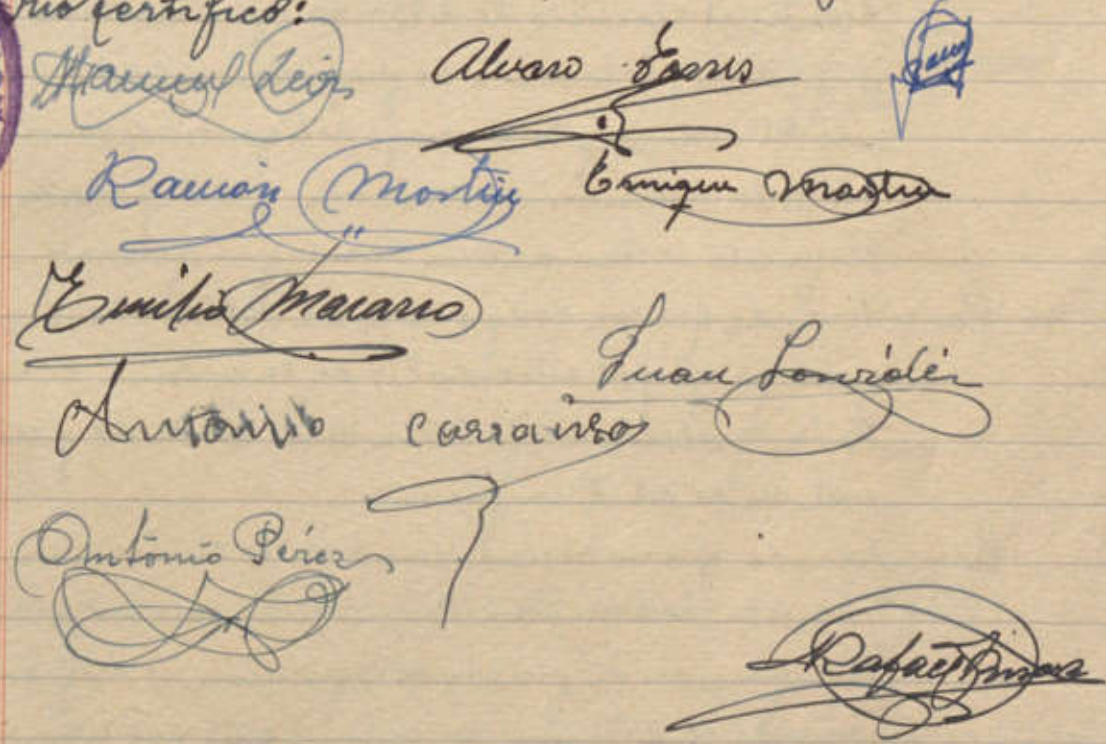 rio certifico:
Manuel León
Alvaro
Ramón Martín
Enrique Martín
Emilio Macarro
Juan
Antonio Carrasco
Antonio Pérez
Rafael